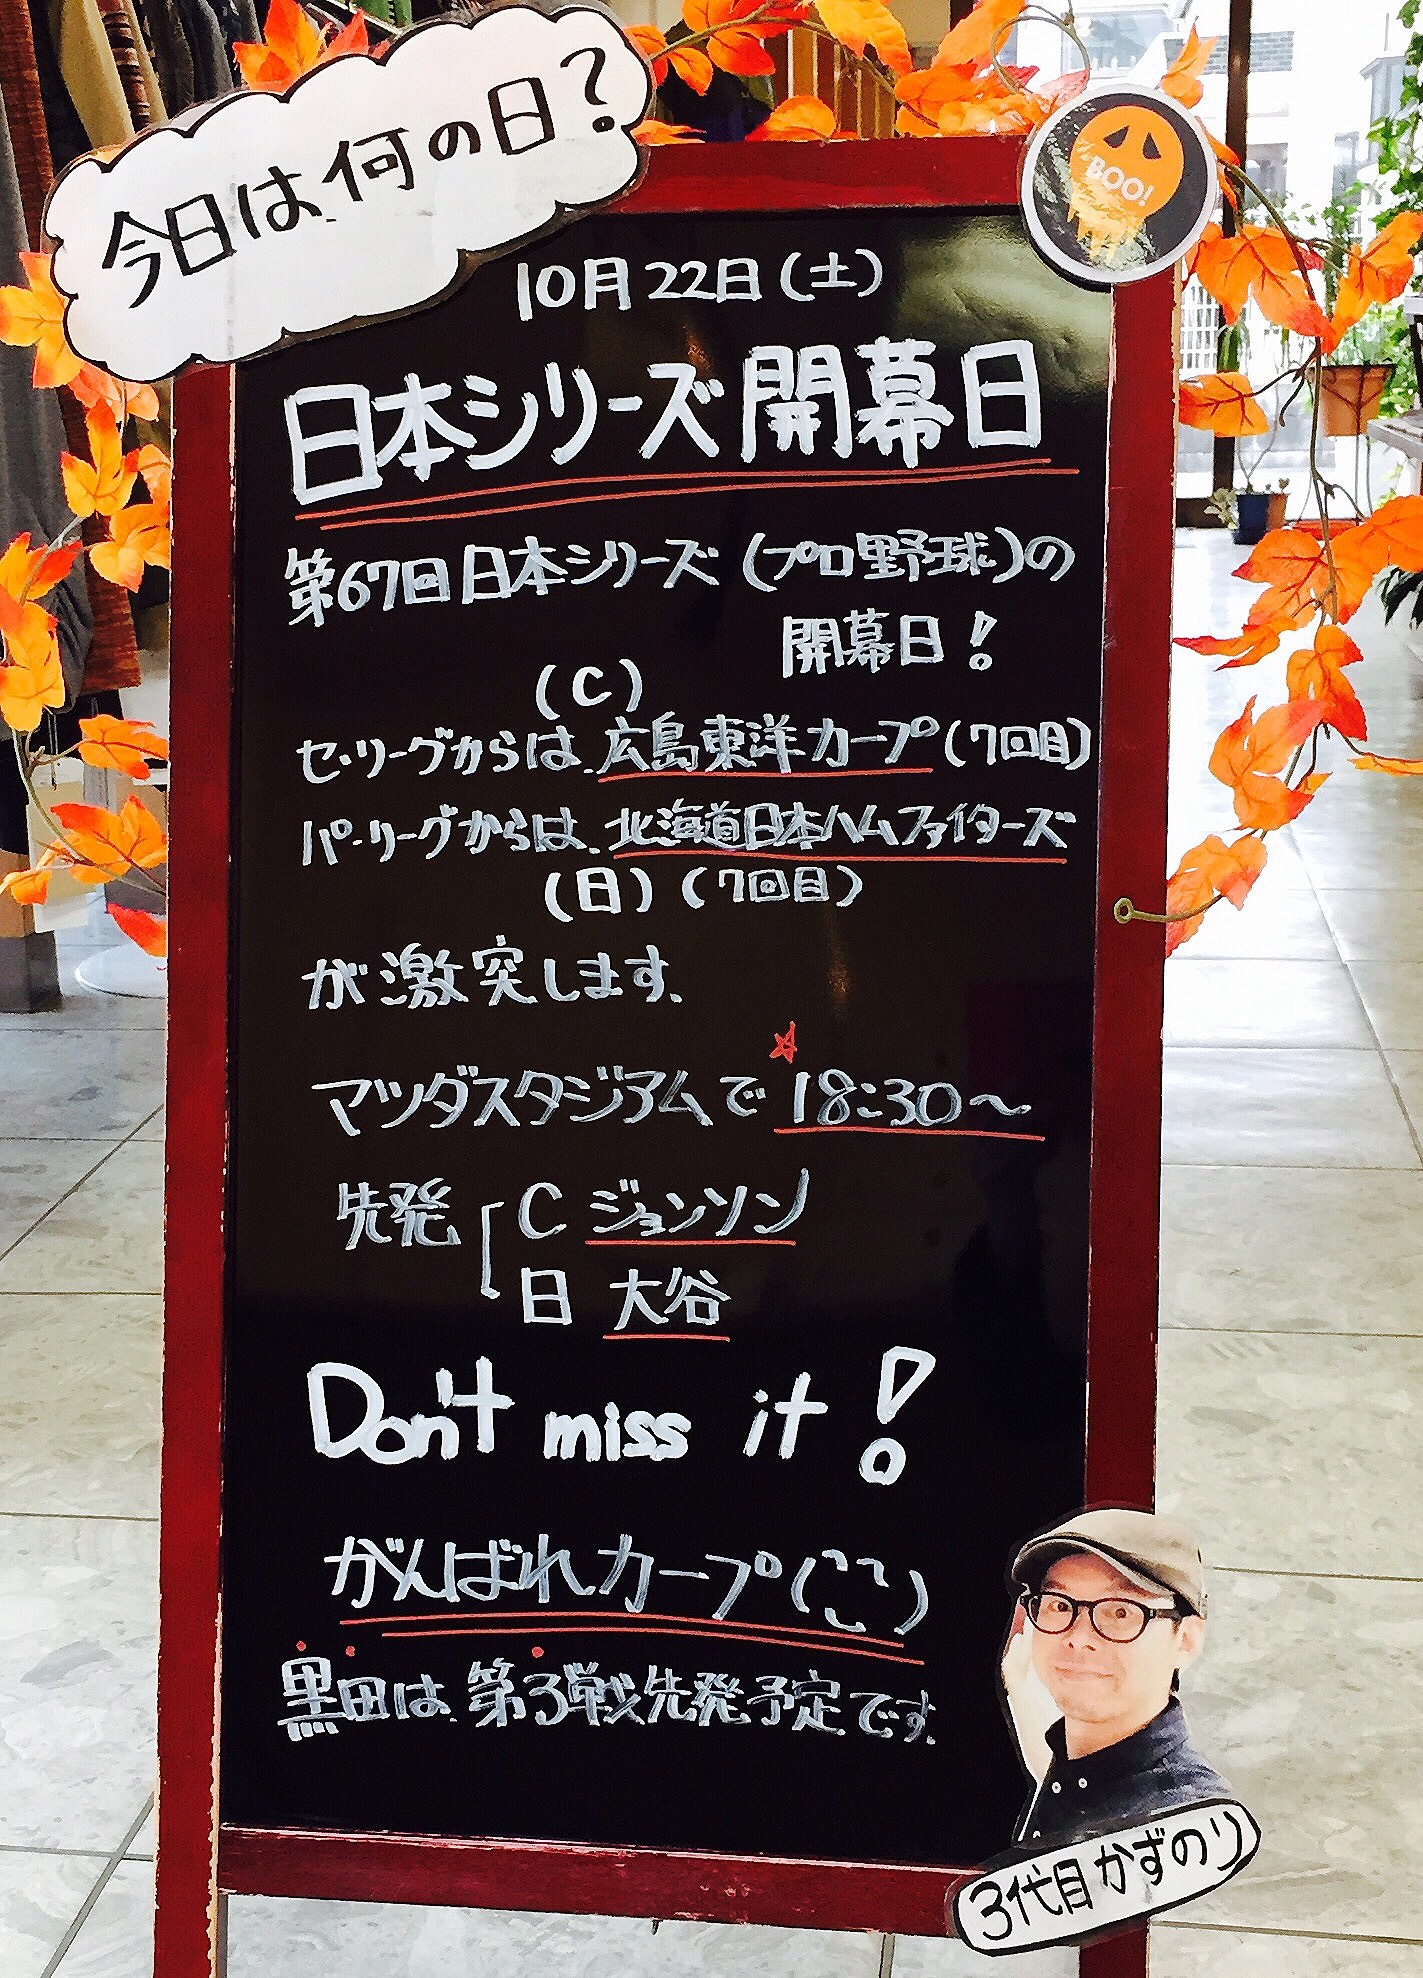 今日は何の日?
BOO!
10月22日(土)
日本シリーズ開幕日
第67回日本シリーズ(プロ野球)の
開幕日!
(C)
セ・リーグからは、広島東洋カープ(7回目)
パ・リーグからは、北海道日本ハムファイターズ
(日)(7回目)
が激突します。
マツダスタジアムで18:30〜
先発 C ジョンソン
日 大谷
Don't miss it!
がんばれカープ(^_^)
黒田は、第3戦先発予定です。
3代目かずのり